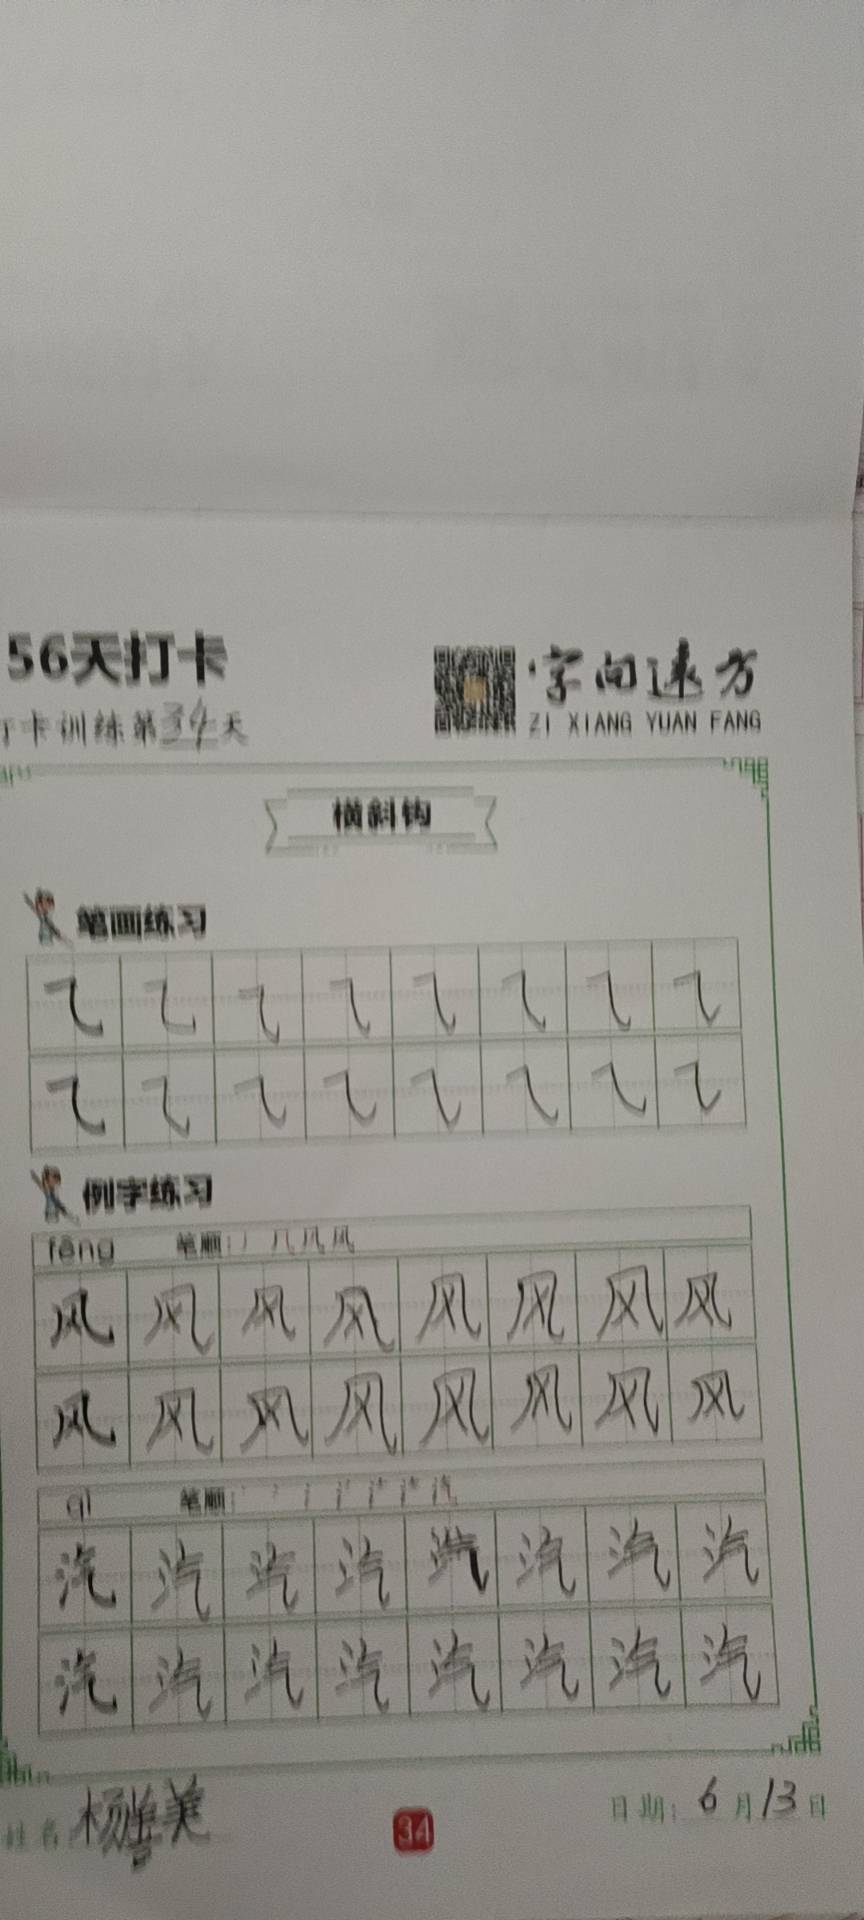 56天打卡
字向远方
打卡训练第34天
ZI XIANG YUAN FANG
横斜钩
笔画练习
㇈ ㇈ ㇈ ㇈ ㇈ ㇈ ㇈ ㇈
㇈ ㇈ ㇈ ㇈ ㇈ ㇈ ㇈ ㇈
例字练习
fēng 笔顺:
风 风 风 风 风 风 风 风
风 风 风 风 风 风 风 风
qì 笔顺:
汽 汽 汽 汽 汽 汽 汽 汽
汽 汽 汽 汽 汽 汽 汽 汽
姓名 杨 美
34
日期: 6月13日